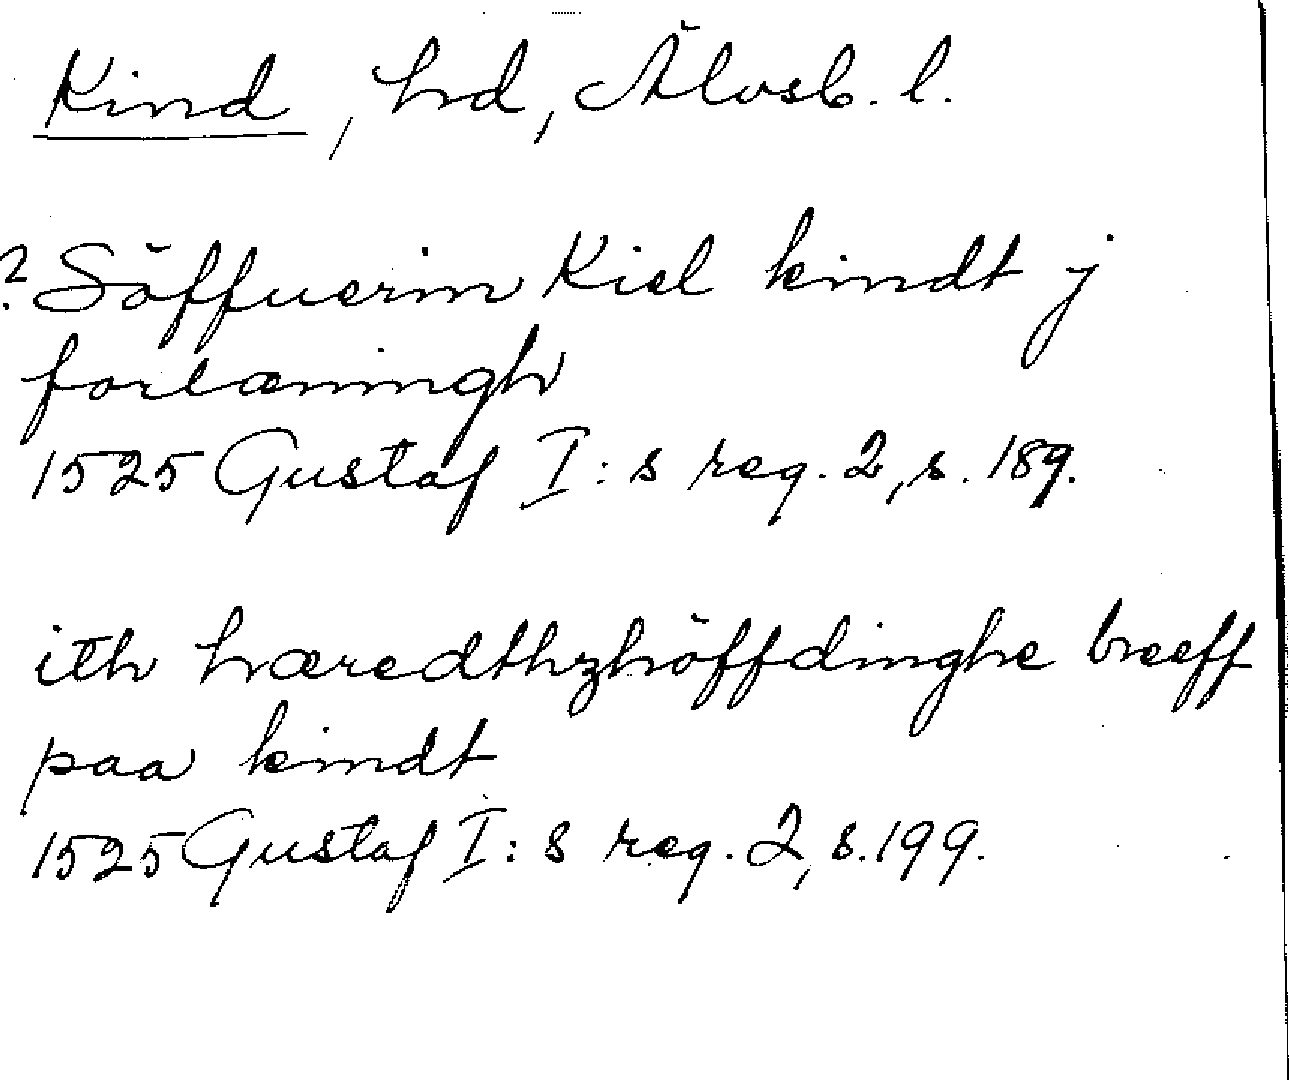 Kind, hd, Älvsb. l.
? Söffuerin Kiel kindt j
forlæningh
1525 Gustaf I:s reg. 2, s. 189.
ith hæredthzhöffdinghe breeff
paa kindt
1525 Gustaf I:s reg. 2, s. 199.